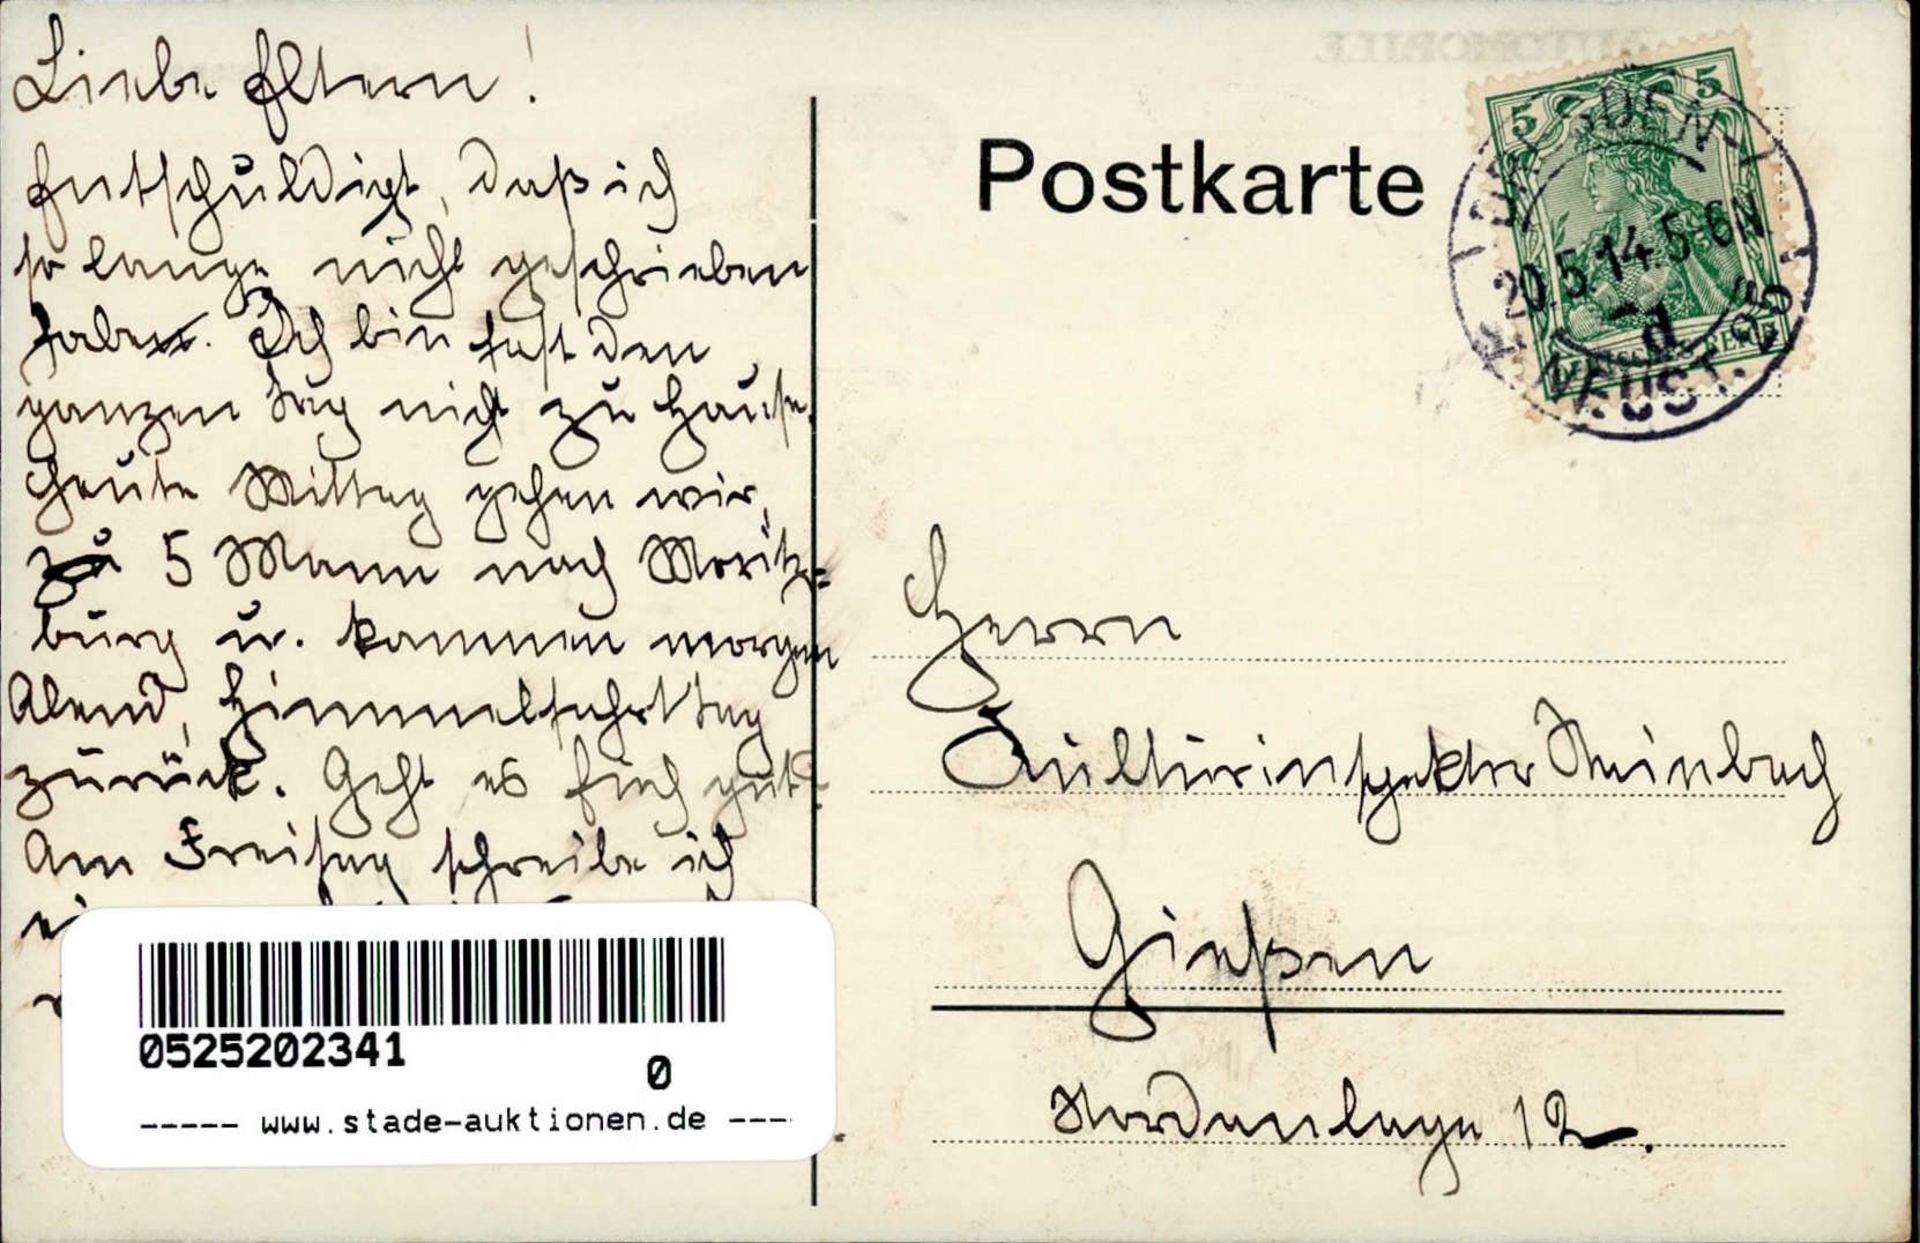 Liebe Eltern!
Entschuldigt, daß ich
so lange nicht geschrieben
habe. Ich bin fast den
ganzen Tag nicht zu Hause.
Heute Mittag gehen wir,
zu 5 Mann nach Moritz=
burg u. kommen morgen
Abend, Himmelfahrtstag
zurück. Geht es Euch gut?
Am Freitag schreibe ich
0525202341
0
----- www.stade-auktionen.de ----
Postkarte
5 5
DRESDEN
20.5.14.5-6N
d
NEUST.
Herrn
Kulturinspektor Steinbach
Gießen
Nordanlage 12.